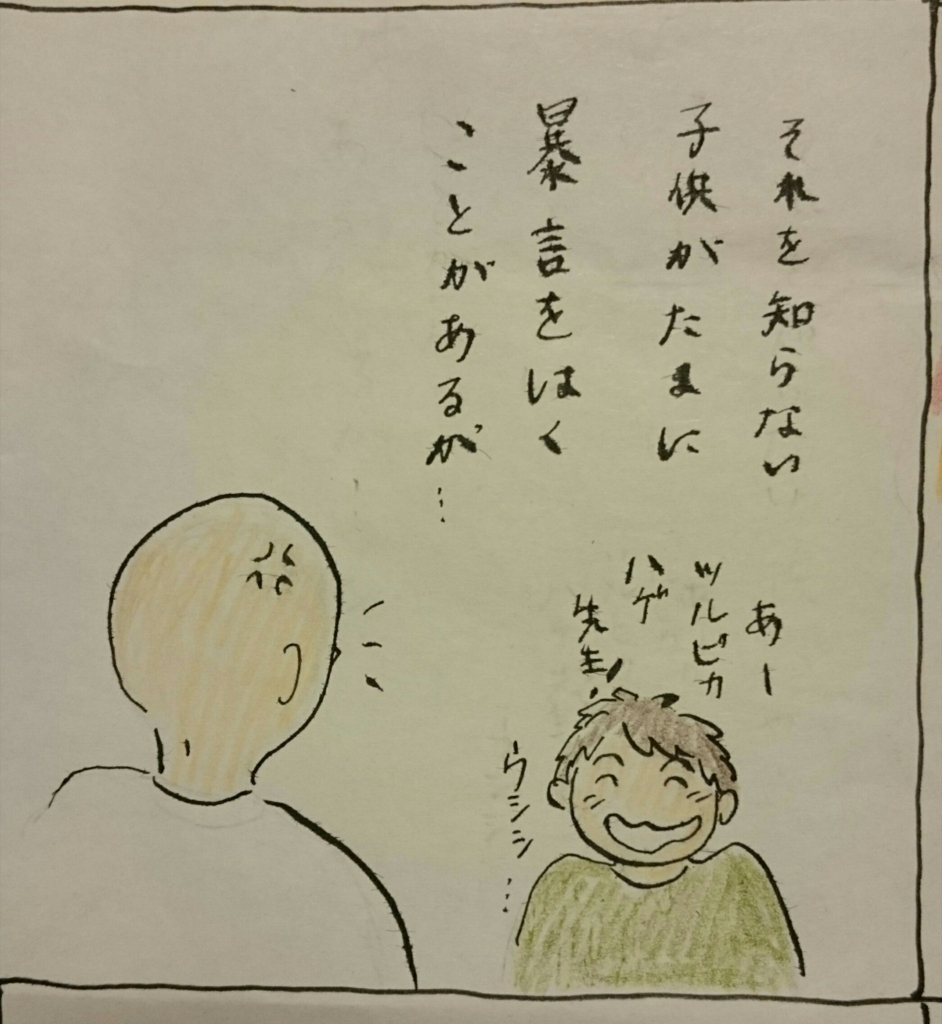 それを知らない
子供がたまに
暴言をはく
ことがあるが…
あー
ツルピカ
ハゲ
先生!
ウシシシ…